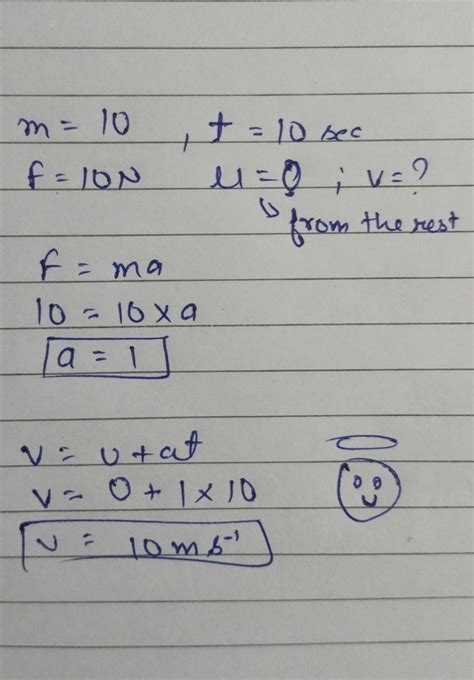 m = 10 , t = 10 sec
f = 10N u = 0 ; v = ?
from the rest
f = ma
10 = 10 x a
a = 1
v = u + at
v = 0 + 1 x 10
v = 10 m s⁻¹